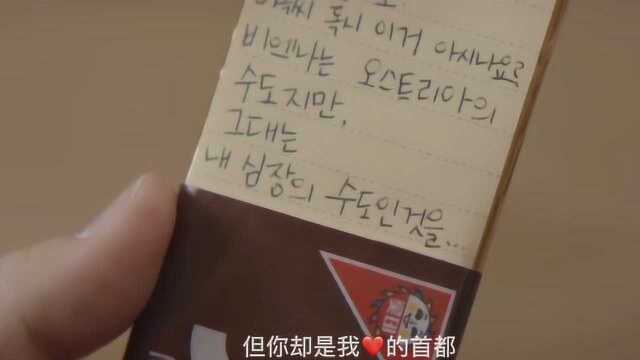 혹시 이거 아시나요
비엔나는 오스트리아의
수도지만,
그대는
내 심장의 수도인것을...
但你却是我❤的首都